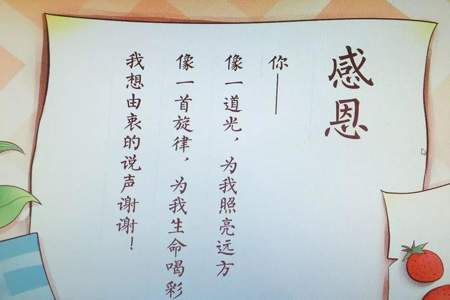 感恩
你——
像一道光，为我照亮远方
像一首旋律，为我生命喝彩
我想由衷的说声谢谢！